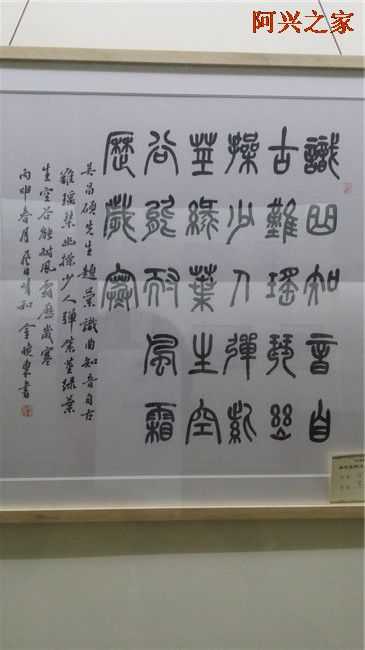 阿兴之家
識曲知音自
古難瑤琴幽
操少人彈紫
莖綠葉生空
谷能耐風霜
歷歲寒
吴昌碩先生題蘭識曲知音自古
難瑤琴幽操少人彈紫莖綠葉
生空谷能耐風霜歷歲寒
丙申春月